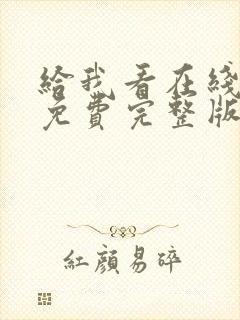 给我看在线
免費完整版
紅顏易碎